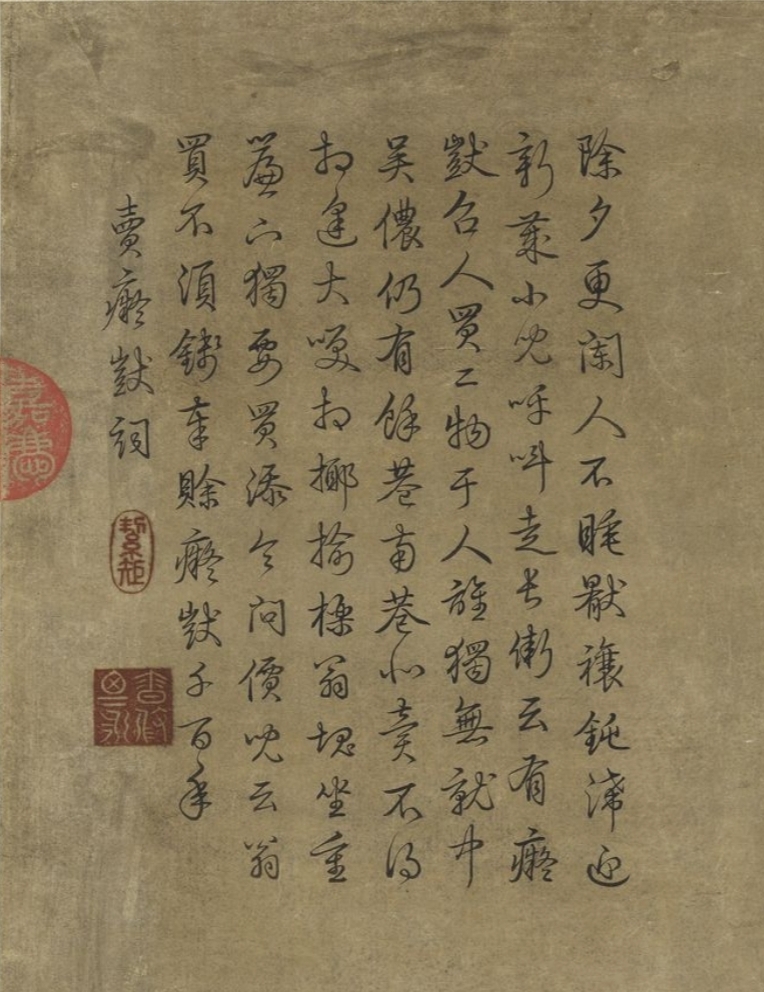 除夕更闌人不睡厭禳鈍滯迎
新歲小兒呼叫走長街云有癡
獃召人買二物于人誰獨無就中
吳儂仍有餘巷南巷北賣不得
相逢大笑相揶揄櫟翁塊坐重
簾下獨要買添令問價兒云翁
買不須錢奉賒癡獃千百年
賣癡獃詞
絜矩
嘉慶